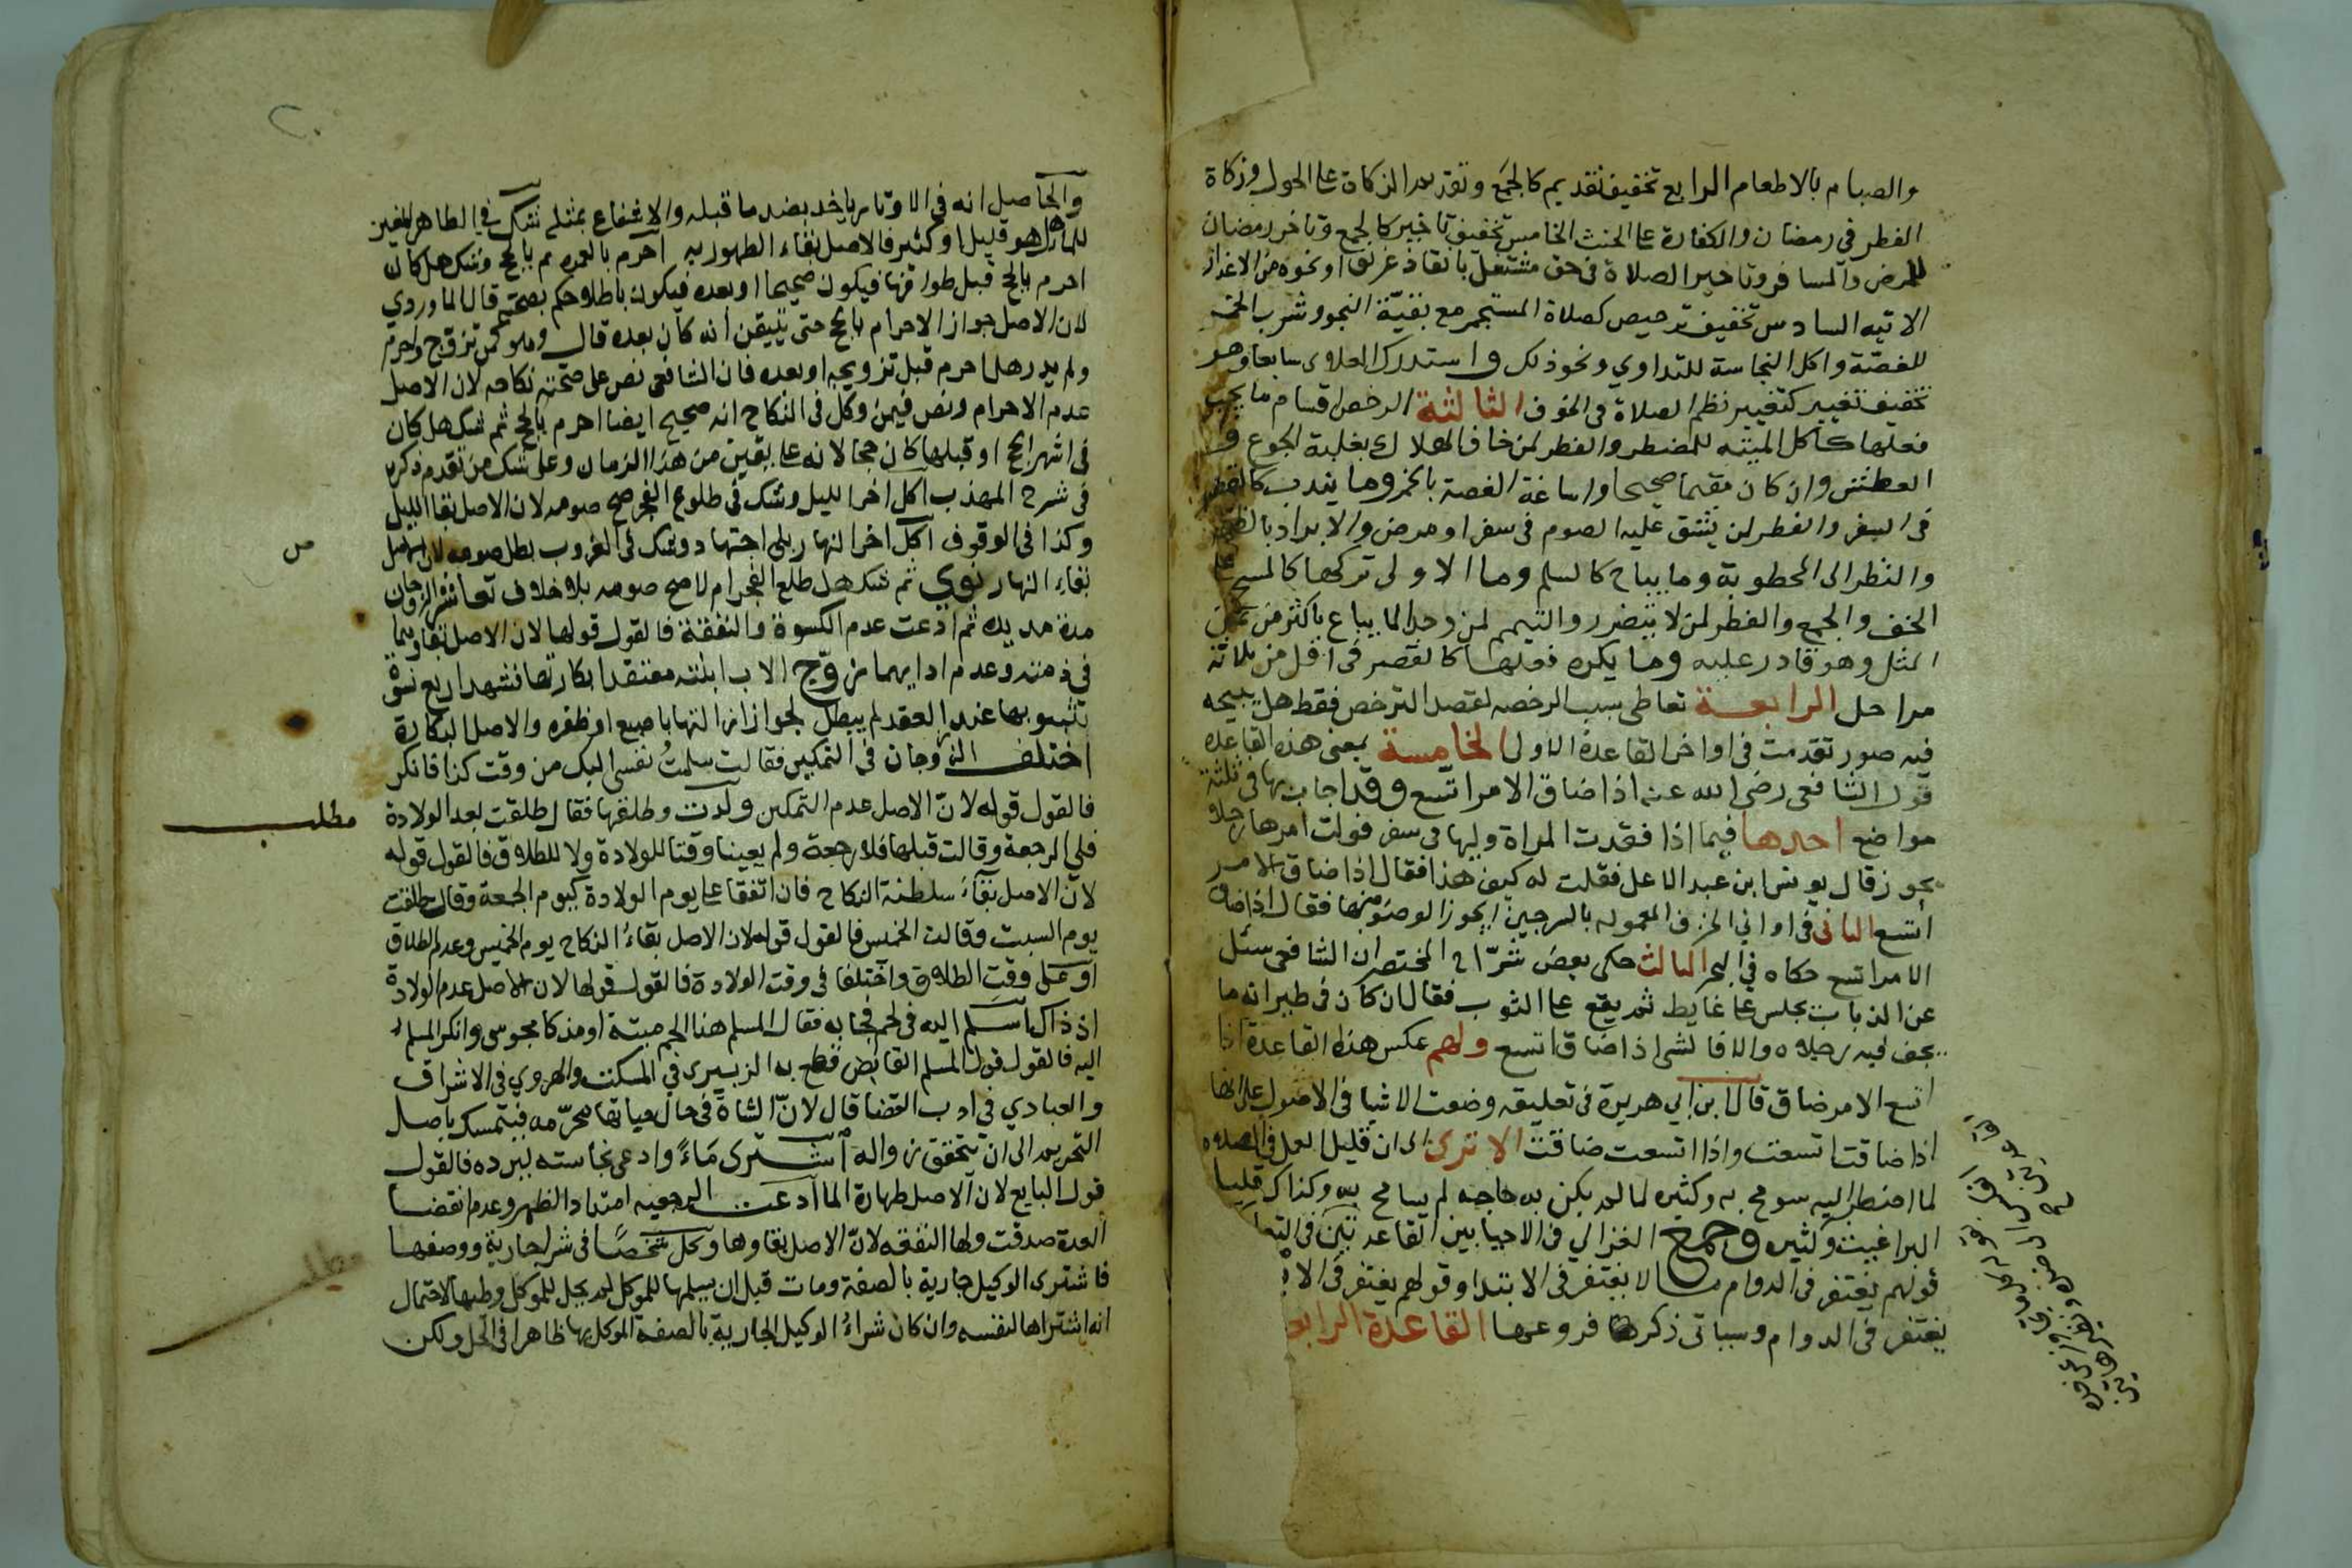 والصيام بالاطعام الرابع تخفيف تقديم كالجمع وتقديم الزكاة على الحول وزكاة
الفطر في رمضان والكفارة على الحنث الخامس تخفيف تاخير كالجمع وتاخر رمضان
للمرض والمسافر وتاخير الصلاة في حق مشتغل بانقاذ غريق او نحوه من الاعذار
الاتيه السادس تخفيف ترخيص كصلاة المستجمر مع بقيّة النجو وشرب الخمر
للغصّة واكل النجاسة للتداوي ونحو ذلك واستدرك العلاوى سابعا وهو
تخفيف تغيير كتغيير نظم الصلاة في الخوف الثالثة الرخص اقسام ما يجب
فعلها كاكل الميته للمضطر والفطر لمن خاف الهلاك بغلبة الجوع و
العطش وان كان مقيما صحيحا واساغة الغصة بالخمر وما يندب كالقصر
في السفر والفطر لمن يشق عليه الصوم في سفر او مرض والابراد بالظهر
والنظر الى المخطوبة وما يباح كالسلم وما الاولى تركها كالمسح على
الخف والجمع والفطر لمن لا يتضرر والتيمم لمن وجد الما يباع باكثر من ثمن
المثل وهو قادر عليه وما يكره فعلها كالقصر في اقل من ثلاثة
مراحل الرابعة تعاطي سبب الرخصه لقصد الترخص فقط هل يبيحه
فيه صور تقدمت في اواخر القاعدة الاولى الخامسة بمعنى هذه القاعدة
قول الشافعي رضي الله عنه اذا ضاق الامر اتسع وقد اجاب بها في ثلثة
مواضع احدها فيما اذا فقدت المراة وليها في سفر فولت امرها رجلا
يجوز قال يونس ابن عبد الاعلى فقلت له كيف هذا فقال اذا ضاق الامر
اتسع الثاني في اواني الخزف المعموله بالسرجين ايجوز الوضؤ منها فقال اذا ضاق
الامر اتسع حكاه في البحر الثالث حكى بعض شرّاح المختصر ان الشافعي سئل
عن الذباب يجلس على غايط ثم يقع على الثوب فقال ان كان في طيرانه ما
يجف فيه رجلاه والا فالشي اذا ضاق اتسع ولهم عكس هذه القاعدة اذا
اتسع الامر ضاق قال ابن ابي هريرة في تعليقه وضعت الاشيا في الاصول على انها
اذا ضاقت اتسعت واذا اتسعت ضاقت الا ترى ان قليل العمل في الصلاه
لما اضطر اليه سومح به وكثيره لما لم يكن به حاجه لم يسامح به وكذلك قليل
البراغيث وكثيره وجمع الغزالي في الاحيا بين القاعدتين
قولهم يغتفر في الدوام ما لا يغتفر في الابتدا وقولهم يغتفر في الا
يغتفر في الدوام وسياتي ذكر فروعها القاعدة الرابعة
والحاصل انه في الاوتاد ياخد بضد ما قبله والاشفاع بمثله شك في الطاهر المغير
للما هل هو قليل او كثير فالاصل بقاء الطهوريه احرم بالعمره ثم بالحج وشك هل كان
احرم بالحج قبل طوافها فيكون صحيحا او بعده فيكون باطلا حكم بصحته قال الماوردي
لان الاصل جواز الاحرام بالحج حتى يتيقن انه كان بعده قال وهو كمن تزوج واحرم
ولم يدر هل احرم قبل تزويجه او بعده فان الشافعي نص على صحته نكاحه لان الاصل
عدم الاحرام ونص فيمن وكل في النكاح انه صحيح ايضا احرم بالحج ثم شك هل كان
في اشهر الحج او قبلها كان حجا لانه على يقين من هذا الزمان وعلى شك من تقدم ذكره
في شرح المهذب اكل اخر الليل وشك في طلوع الفجر صح صومه لان الاصل بقا الليل
وكذا في الوقوف اكل اخر النهار بلا اجتهاد وشك في الغروب بطل صومه لان الاصل
بقاء النهار نوي ثم شك هل طلع الفجر ام لا صح صومه بلا خلاف تعاشر الزوجان
مدة مديدة ثم ادعت عدم الكسوة والنفقة فالقول قولها لان الاصل بقاوهما
في ذمته وعدم ادايهما زوّج الاب ابنته معتقدا بكارتها فشهد اربع نسوة
بثيوبها عند العقد لم يبطل لجواز ازالتها باصبع او ظفره والاصل البكارة
اختلف الزوجان في التمكين فقالت سلمتُ نفسي اليك من وقت كذا فانكر
فالقول قوله لانّ الاصل عدم التمكين ولدت وطلقها فقال طلقت بعد الولادة
فلي الرجعة وقالت قبلها فلا رجعة ولم يعينا وقتا للولادة ولا للطلاق فالقول قوله
لان الاصل بقاء سلطنة النكاح فان اتفقا على يوم الولادة كيوم الجمعة وقال طلقت
يوم السبت وقالت الخميس فالقول قوله لان الاصل بقاءُ النكاح يوم الخميس وعدم الطلاق
او على وقت الطلاق واختلفا في وقت الولادة فالقول قولها لان الاصل عدم الولادة
اذ ذاك اسلم اليه في لحم فجا به فقال المسلم هذا لحم ميتة او مذكا مجوسي وانكر المسلم
اليه فالقول قول المسلم القابض قطع به الزبيري في المسكت والهروي في الاشراف
والعبادي في ادب القضا قال لانّ الشاة في حال حياتها محرّمه فيتمسك باصل
التحريم الى ان يتحقق زواله اشترى مَاءً وادعى نجاسته ليرده فالقول
قول البايع لان الاصل طهارة الما ادعت الرجعيه امتداد الطهر وعدم انقضا
العدة صدقت ولها النفقه لانّ الاصل بقاوها وكل شخصًا في شرا جارية ووصفها
فاشترى الوكيل جارية بالصفة ومات قبل ان يسلمها للموكل لم يحل للموكل وطيها لاحتمال
انه اشتراها لنفسه وان كان شراءُ الوكيل الجارية بالصفة الموكل بها ظاهرا في الحل ولكن
مطلب
مطلب